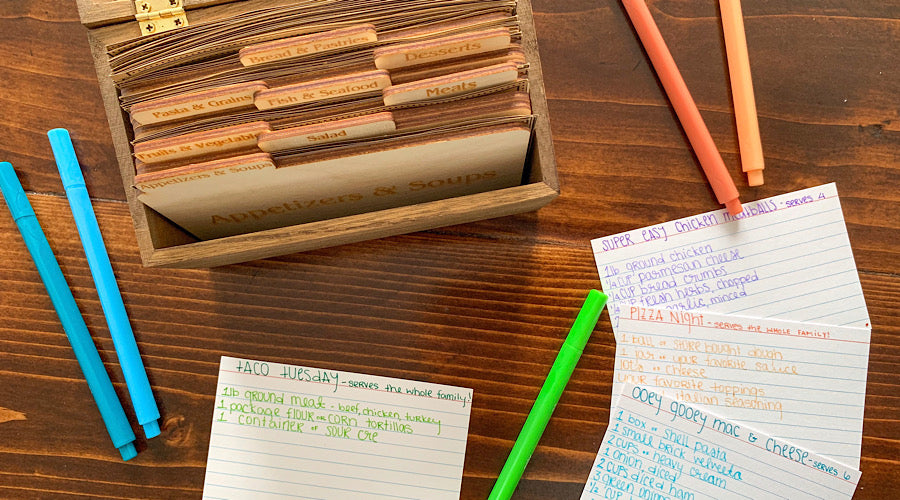 Bread & Pastries
Desserts
Pasta & Grains
Fish & Seafood
Meats
Fruits & Vegetables
Salad
Appetizers & Soups
Appetizers & Soups
SUPER EASY CHICKEN MEATBALLS - SERVES 4
1lb ground chicken
CUP PARMESAN CHEESE
CUP BREAD CRUMBS
FRESH HERBS, CHOPPED
GARLIC, MINCED
PIZZA NIGHT - SERVES THE WHOLE FAMILY!
1 BALL OF STORE BOUGHT DOUGH
1 JAR OF YOUR FAVORITE SAUCE
LOTS OF CHEESE
YOUR FAVORITE TOPPINGS
ITALIAN SEASONING
OOEY GOOEY MAC & CHEESE - SERVES 6
1 BOX OF SHELL PASTA
1 SMALL BRICK VELVEETA
2 CUPS OF HEAVY CREAM
1 ONION DICED
2 CUPS DICED HAM
3 GREEN ONIONS
1/2 CUP
TACO TUESDAY - SERVES THE WHOLE FAMILY!
1lb GROUND MEAT - BEEF, CHICKEN, TURKEY
1 PACKAGE FLOUR OR CORN TORTILLAS
1 CONTAINER OF SOUR CRE